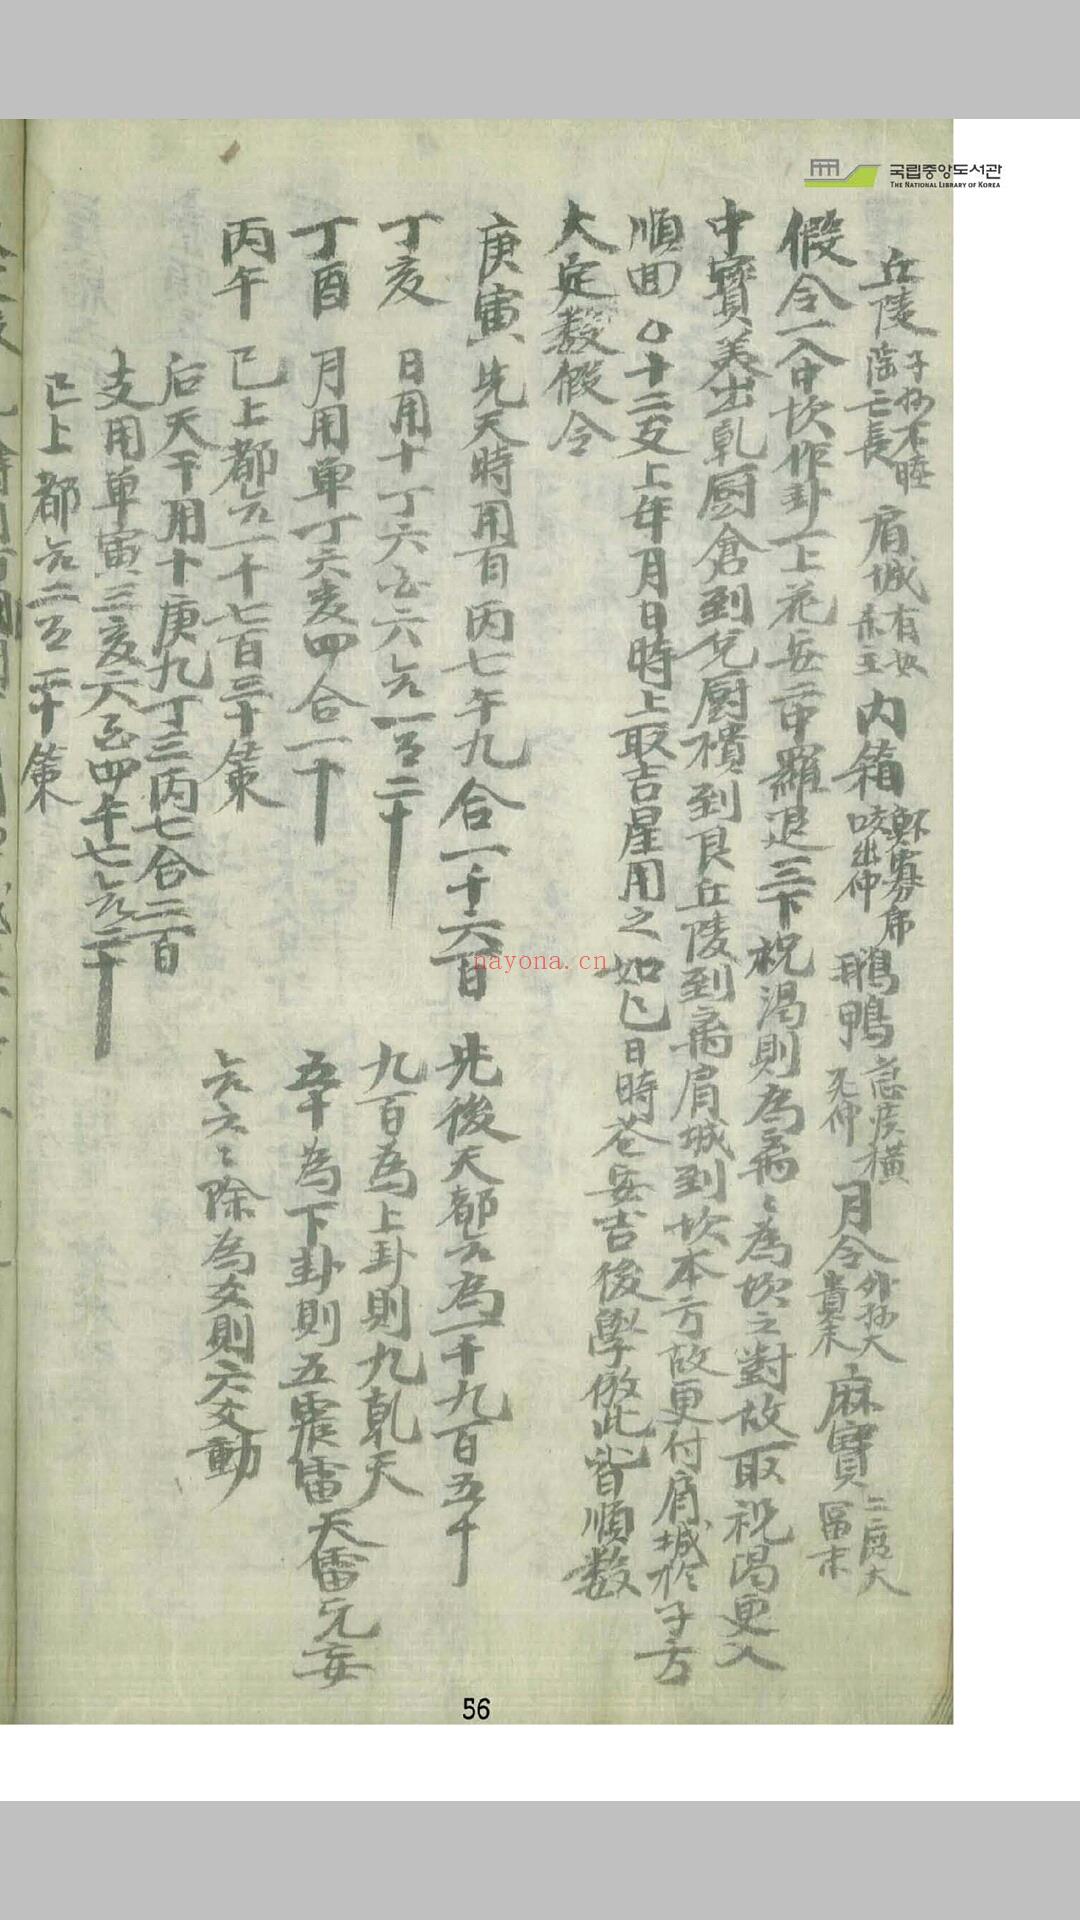 국립중앙도서관
THE NATIONAL LIBRARY OF KOREA
丘陵 子孫不睦 陰亡長 肩城 有如 赤主 内箱 鄭寡分席 咬出仲 鵝鴨 急疾橫 死仲 月令 外孫大 貴末 麻寶 二度大 冨末
假令一入中坎作卦一上花岳二中羅退三下祝渴則為离〻為坎之對故取祝渴更入
中寶美出乾厨倉到兌厨樻到艮丘陵到离肩城到坎本方故更付肩城於子方
順回 〇十二支上年月日時上取吉星用之如匕日時苍安吉後學倣此皆順数
大定数假令
庚寅 先天時用百丙七午九合一千六百
丁亥 日用十丁六亥六 一百二十
丁酉 月用單丁六亥四合一十
丙午 已上都 一千七百三十策
后天干用十庚九丁三丙七合二百
支用單寅三亥六 四午七 二十
已上都 二百二十策
先後天都 為一千九百五十
九百為上卦則九乾天
五十為下卦則五震雷天雷无妄
六〻除為爻則六爻動
nayona.cn
56